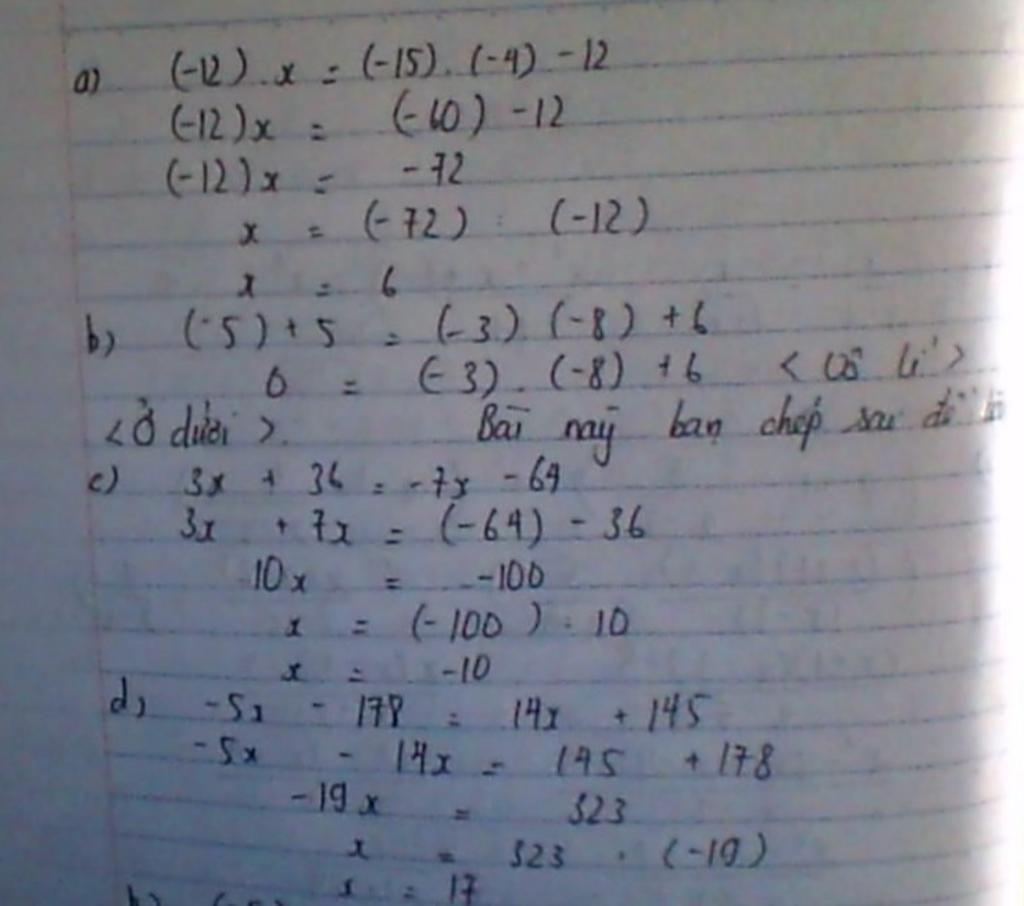 a) (-12) . x = (-15) . (-4) - 12
(-12)x = (-60) - 12
(-12)x = - 72
x = (-72) : (-12)
x = 6
b) (-5) + 5 = (-3) (-8) + 6
0 = (-3) . (-8) + 6 < Vô lí >
<Ở dưới > Bài này bạn chép sai đề
c) 3x + 36 = -7x - 64
3x + 7x = (-64) - 36
10x = -100
x = (-100) : 10
x = -10
d) -5x - 178 = 14x + 145
-5x - 14x = 145 + 178
-19x = 323
x = 323 : (-19)
x = 17